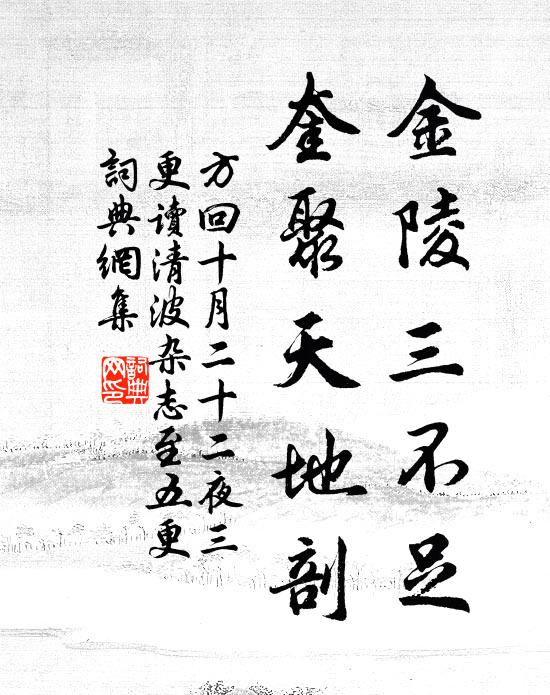 金陵三不足
奎聚天地剖
方回十月二十二夜三
更讀清波杂志至五更
詞典網集
詞典网印